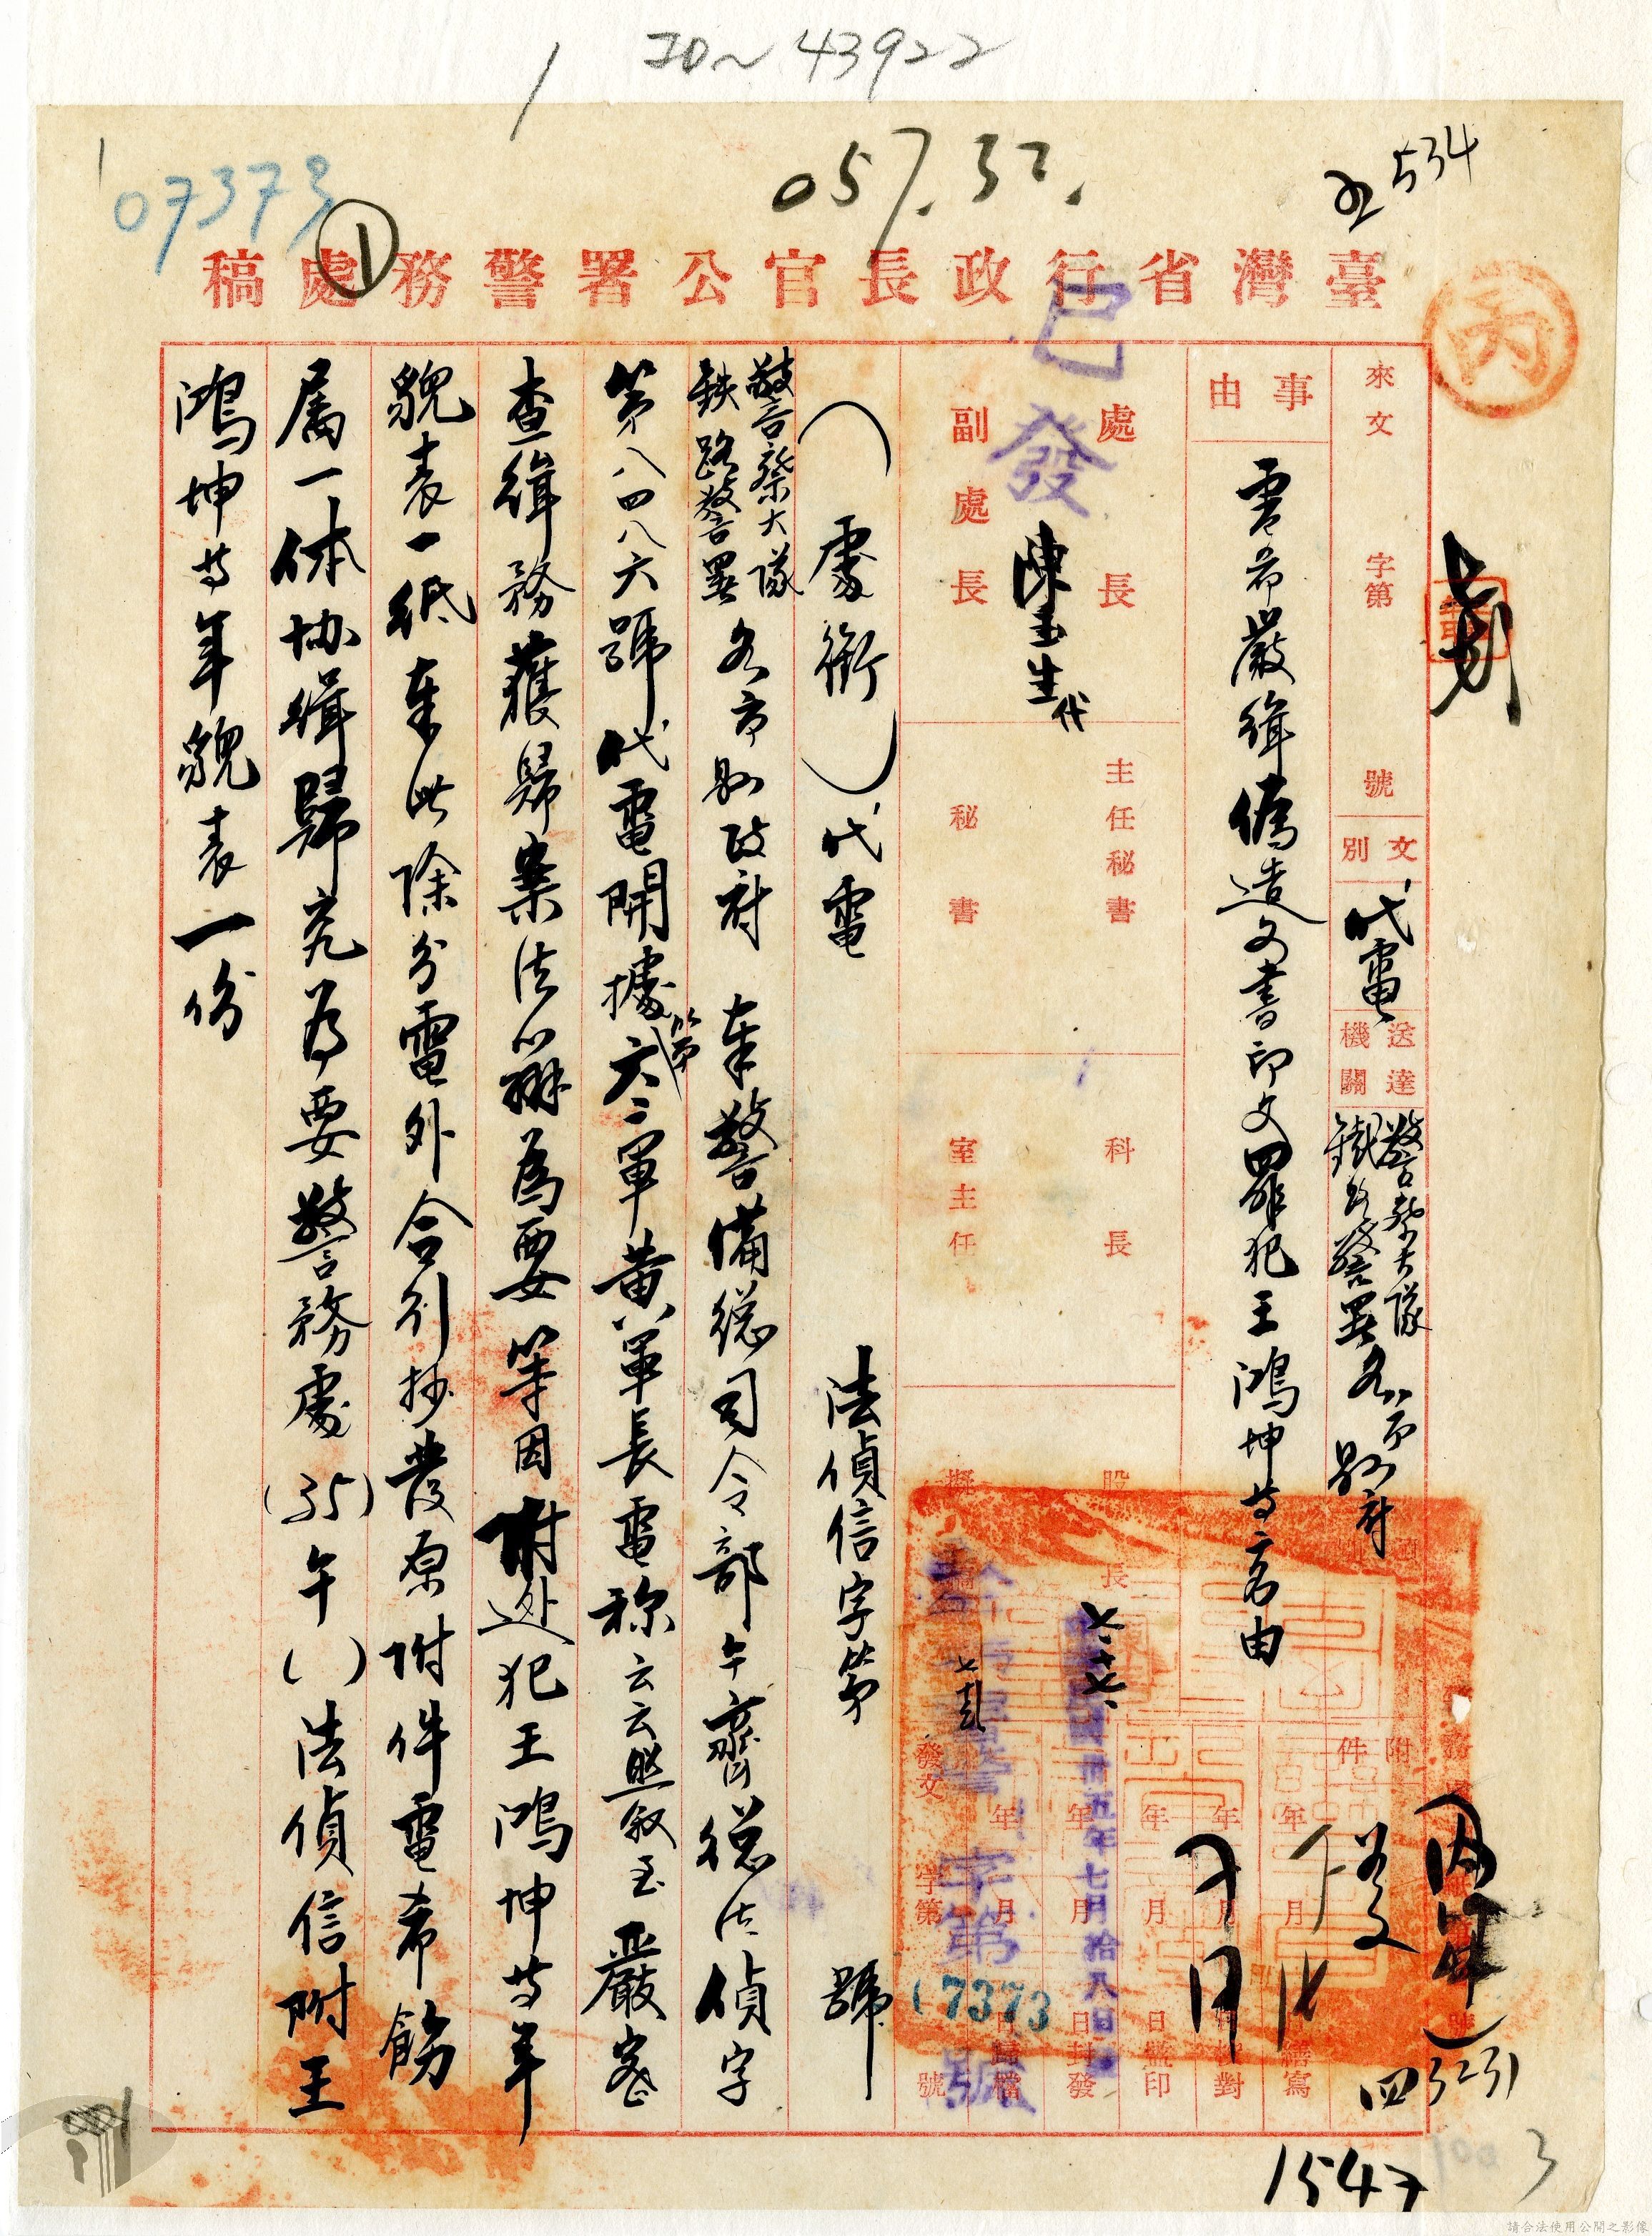 1 JD~43922
057.32.
534
07373
①
臺灣省行政長官公署警務處稿
丙
已發
來文 字第 號
文別 代電
送達機關 警察大隊 鐵路警署 各市縣府
附件
事由 電希嚴緝偽造文書印文罪犯王鴻坤等名由
處長 主任秘書 科長 股長
陳玉生代
副處長 秘書 室主任 擬稿
七.十七.
年 月 日繕寫
年 月 日校對
年 月 日監印
卅五年七月拾八日封發
年 月 日歸檔
發文 字第 號
(7373
(處銜)代電 法偵信字第 號
警察大隊 鉄路警署 各市縣政府 奉警備總司令部午齊總法偵字
第八四八六號代電開據第六二軍黃軍長電称云云照叙至嚴密
查緝務獲歸案法辦為要等因附逃犯王鴻坤等年
貌表一紙奉此除分電外合行抄發原附件電希飭
屬一体協緝歸究為要警務處(35)午( )法偵信附王
鴻坤等年貌表一份
四3231
1547
3
請合法使用公開之影像